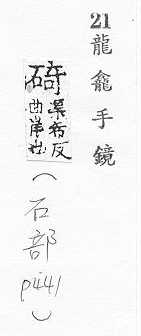 21 龍龕手鏡
碕
渠希反
曲岸也
(石部 p441)